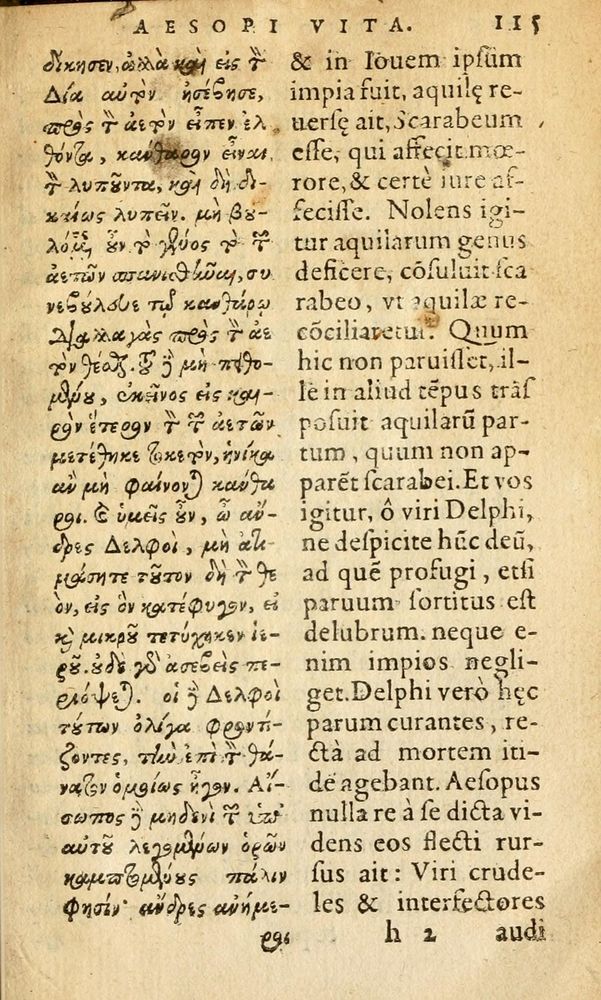 AESOPI VITA. 115
δίκησεν, ἀλλὰ καὶ εἰς τὸν
Δία αὐτὸν ἠσέβησε,
πρὸς τὸν ἀετὸν εἶπεν ἐλ
θόντα, κάνθαρον εἶναι
τὸν λυποῦντα, καὶ δὴ δι-
καίως λυπεῖν. μὴ βου-
λόμενος οὖν τὸ γένος τὸ τῶν
ἀετῶν σπανισθῆναι, συ
νεβούλευε τῷ κανθάρῳ
διαλλαγὰς πρὸς τὸν ἀε
τὸν θέσθαι. τοῦ δὲ μὴ πειθο-
μένου, ἐκεῖνος εἰς και-
ρὸν ἕτερον τὸν τῶν ἀετῶν
μετέθηκε τοκετὸν, ἡνίκα
ἂν μὴ φαίνονται κάνθα
ροι. καὶ ὑμεῖς οὖν, ὦ ἄν-
δρες Δελφοὶ, μὴ ἀτι-
μάσητε τοῦτον δὴ τὸν θε
ὸν, εἰς ὃν κατέφυγον, εἰ
καὶ μικροῦ τετύχηκεν ἱε-
ροῦ. οὐδὲ γὰρ ἀσεβεῖς πε-
ριόψεται. οἱ δὲ Δελφοὶ
τούτων ὀλίγα φροντί-
ζοντες, τὴν ἐπὶ τὸν θά-
νατον ὁμοίως ἦγον. Αἴ-
σωπος δὲ μηδενὶ τῶν ὑπ'
αὐτοῦ λεγομένων ὁρῶν
καμπτομένους πάλιν
φησίν· ἄνδρες ἀνήμε-
ροι
& in Iouem ipſum
impia fuit, aquilę re-
uerſę ait, Scarabeum
eſſe, qui affecit mœ-
rore, & certè iure af-
feciſſe. Nolens igi-
tur aquilarum genus
deficere, cõſuluit ſca
rabeo, vt aquilæ re-
cõciliaretur. Quum
hic non paruiſſet, il-
le in aliud tẽpus trãſ
poſuit aquilarũ par-
tum, quum non ap-
parẽt ſcarabei. Et vos
igitur, ô viri Delphi,
ne deſpicite hũc deũ,
ad quẽ profugi, etſi
paruum ſortitus eſt
delubrum. neque e-
nim impios negli-
get. Delphi verò hęc
parum curantes, re-
ctà ad mortem iti-
dẽ agebant. Aeſopus
nulla re à ſe dicta vi-
dens eos flecti rur-
ſus ait: Viri crude-
les & interfectores
h 2 audi